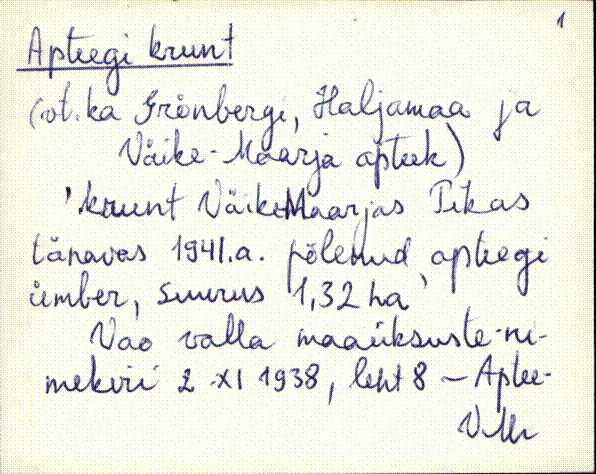 1
Apteegi krunt
(vt. ka Grönbergi, Haljamaa ja
Väike-Maarja apteek)
'krunt Väike-Maarjas Pikas
tänavas 1941.a. põlenud apteegi
ümber, suurus 1,32 ha'
Vao valla maaüksuste ni-
mekiri 2 XI 1938, leht 8 – Aptee-
VMr